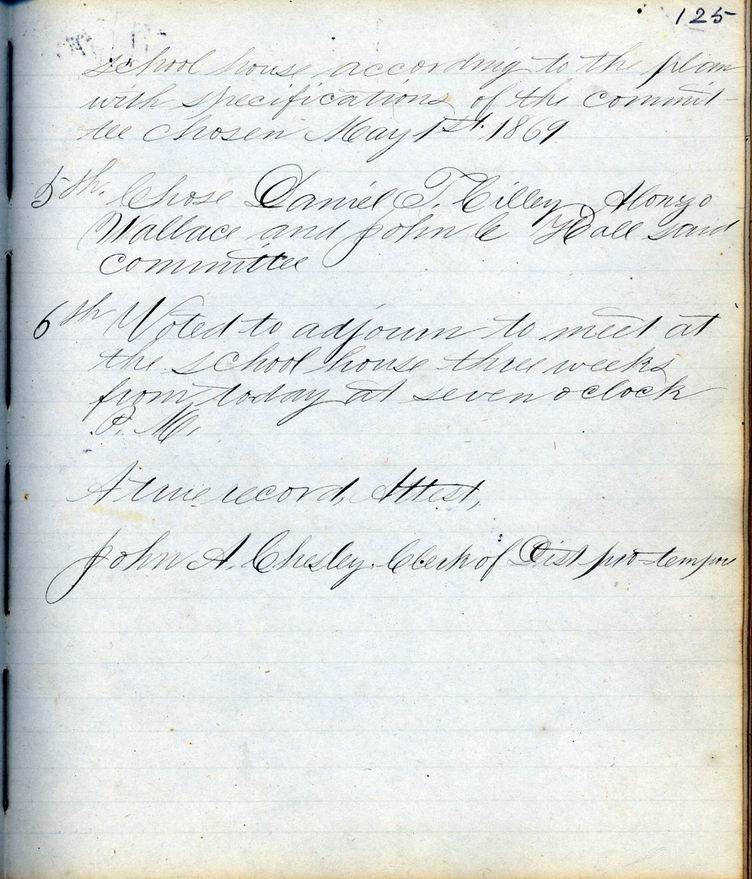 125
school house according to the plan
with specifications of the commit-
tee chosen May 1st. 1869
5th. Chose Daniel T. Cilley, Alonzo
Wallace and John C Hall said
committee
6th Voted to adjourn to meet at
the school house three weeks
from today at seven oclock
P. M.
A true record, Attest,
John A. Chesley. Clerk of Dist pro-tempore